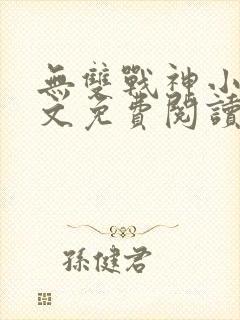 無雙戰神小
文免費閱讀
孫健君